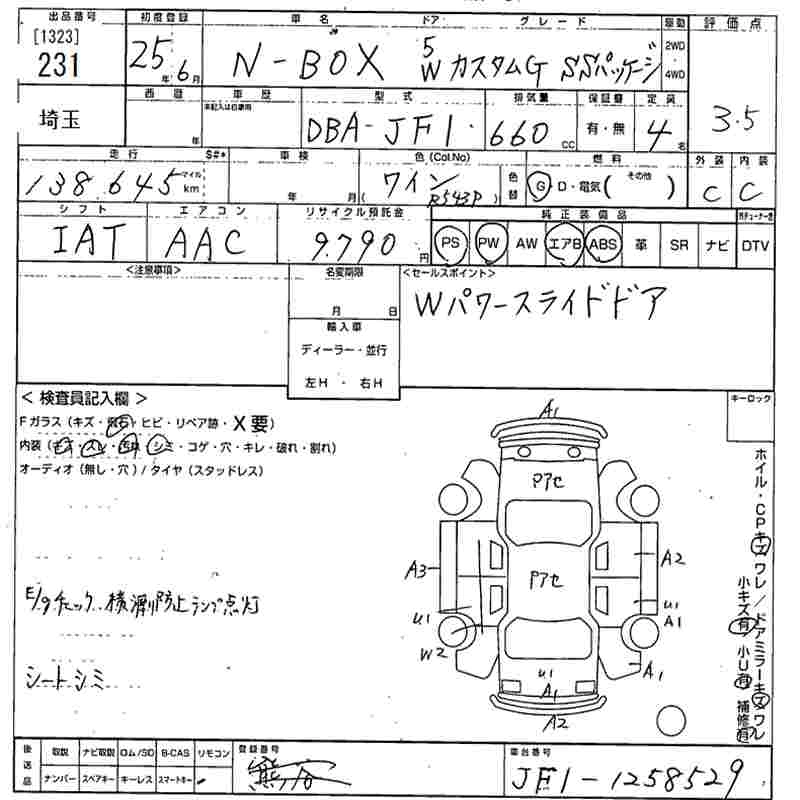 出品番号 初度登録 車名 ドア グレード 駆動 評価点
[1323]
231 25年 6月 N-BOX 5 W カスタムG SSパッケージ 2WD・4WD 3.5
西暦 車歴 型式 排気量 保証書 定員
埼玉 年 DBA-JF1 660cc 有・無 4名
走行 S#* 車検 色(Col.No) 燃料 外装 内装
138,645 マイル km 年 月 (ワイン R543P) 色替 G・D・電気(その他) C C
シフト エアコン リサイクル預託金 純正装備品
IAT AAC 9.790円 PS PW AW エアB ABS 革 SR ナビ DTV
<注意事項> 名変期限 <セールスポイント>
月 日 Wパワースライドドア
輸入車
ディーラー・並行
左H・右H
<検査員記入欄> キーロック
Fガラス(キズ・飛石・ヒビ・リペア跡・X要)
内装(キズ・スレ・汚れ・シミ・コゲ・穴・キレ・破れ・割れ)
オーディオ(無し・穴)/タイヤ(スタッドレス)
E/gチェック、横滑り防止ランプ点灯
シートシミ
A1
Pアセ
A3 Pアセ A2
U1 U1
A1
W2
U1 A1
A1
A2
ホイル・CPキズワレ/ドアミラーキズワレ
小キズ有 小U有 補修有
後送品 取説 ナビ取説 ロム/SD B-CAS リモコン 登録番号 車台番号
ナンバー スペアキー キーレス スマートキー 熊谷 JF1-1258529